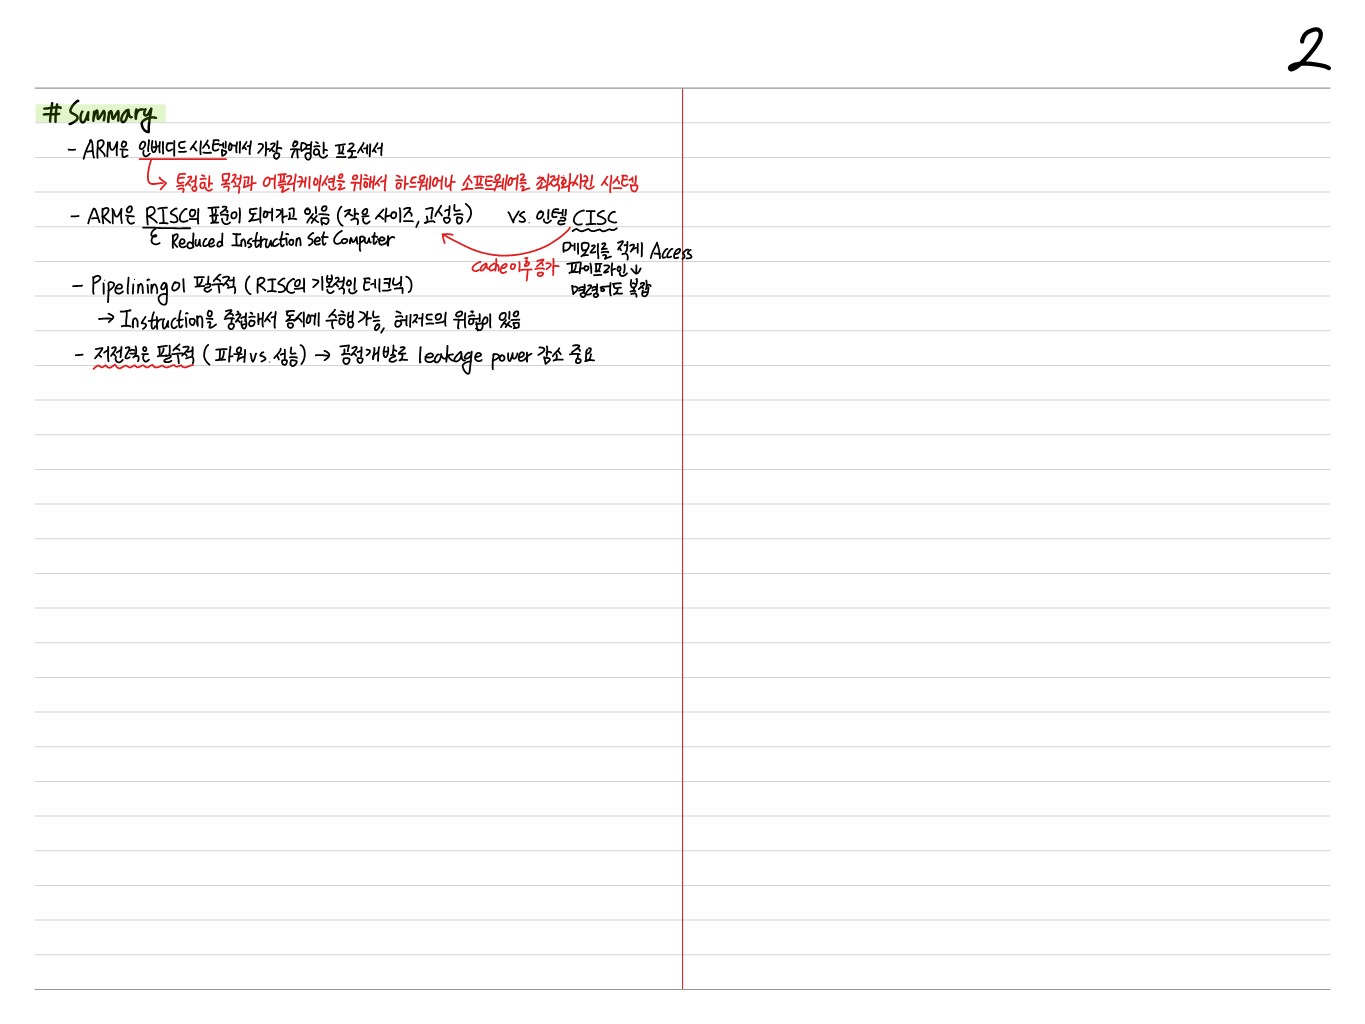 2
# Summary
- ARM은 인베디드 시스템에서 가장 유명한 프로세서
→ 특정한 목적과 어플리케이션을 위해서 하드웨어나 소프트웨어를 최적화시킨 시스템
- ARM은 RISC의 표준이 되어가고 있음 (작은 사이즈, 고성능) vs. 인텔 CISC
Reduced Instruction Set Computer
메모리를 적게 Access
cache이후 증가 파이프라인↓
명령어도 복잡
- Pipelining이 필수적 (RISC의 기본적인 테크닉)
→ Instruction을 중첩해서 동시에 수행 가능, 헤저드의 위험이 있음
- 저전력은 필수적 (파워 vs. 성능) → 공정개발로 leakage power 감소 중요